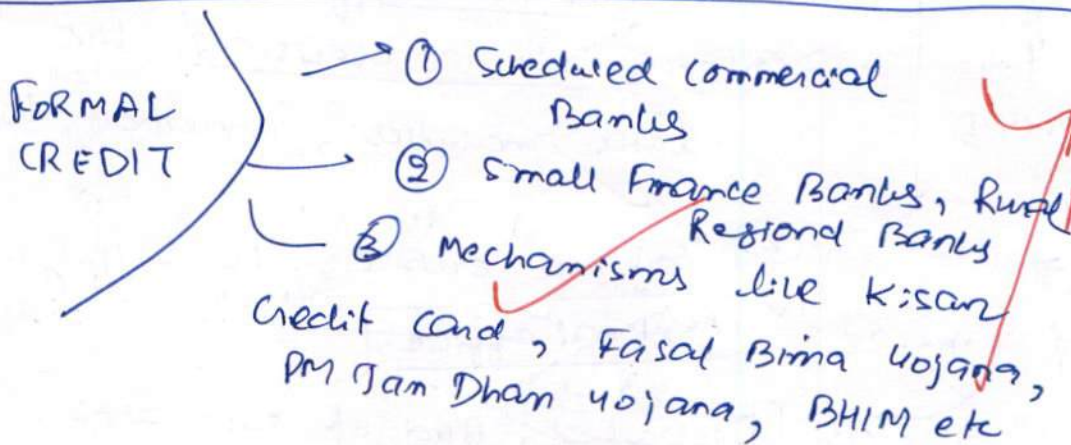 FORMAL
CREDIT
① Scheduled Commercial
Banks
② Small Finance Banks, Rural
Regional Banks
③ Mechanisms like Kisan
Credit Card, Fasal Bima Yojana,
PM Jan Dhan Yojana, BHIM etc